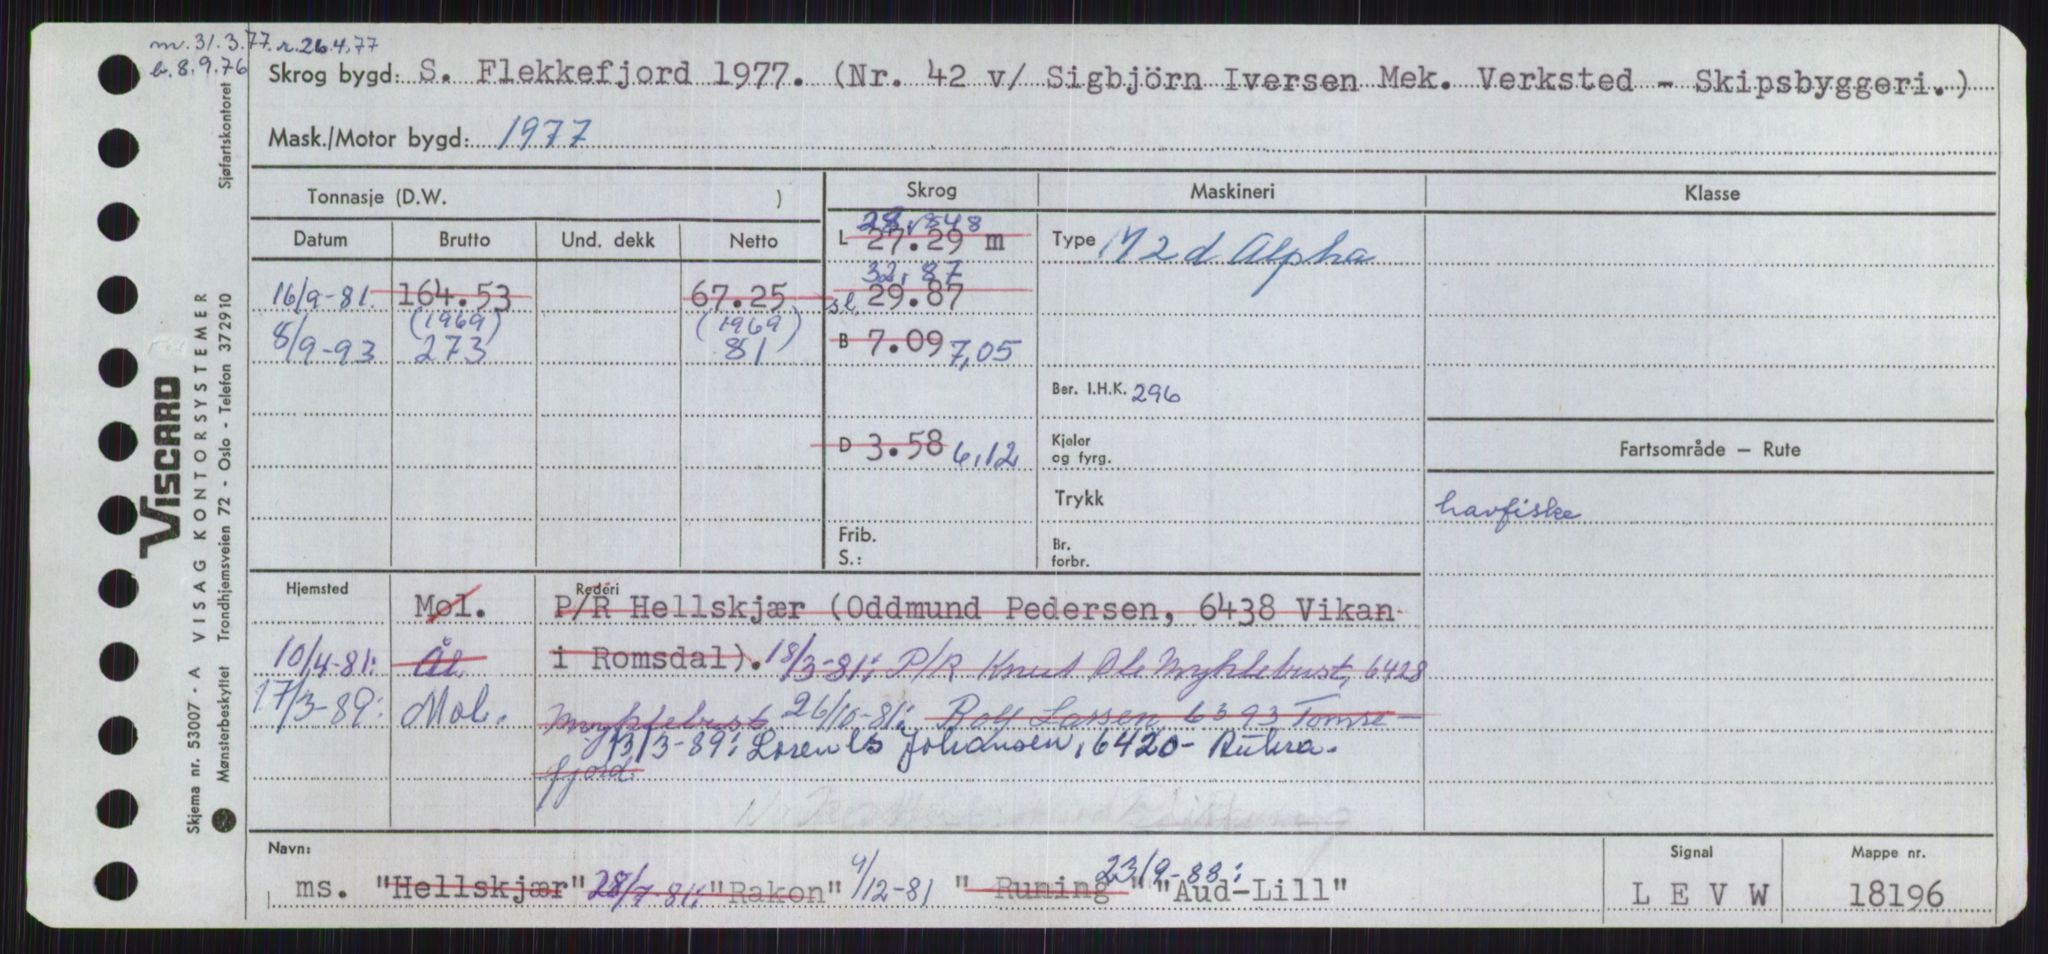 m. 31.3.77. r. 26.4.77
b. 8.9.76
Skrog bygd: S. Flekkefjord 1977. (Nr. 42 v/ Sigbjörn Iversen Mek. Verksted - Skipsbyggeri.)
Mask./Motor bygd: 1977
Tonnasje (D.W. ) Skrog Maskineri Klasse
Datum Brutto Und. dekk Netto
28,848
L 27.29 m Type M 2 d Alpha
32,87
16/9-81. 164.53 67.25 sl. 29.87
(1969) (1969)
8/9-93 273 81 B 7.09 7,05
Ber. I.H.K. 296
D 3.58 6,12 Kjeler
og fyrg.
Fartsområde — Rute
Trykk
havfiske
Frib.
S.:
Br.
forbr.
Hjemsted Rederi
Mol. P/R Hellskjær (Oddmund Pedersen, 6438 Vikan
10/4-81: Ål. i Romsdal). 18/3-81: P/R Knut Ole Myklebust, 6428
17/3-89: Mol. Myklebust 26/10-81: Rolf Lassen, 6393 Tomre-
13/3-89: Lorents Johansen, 6420- Aukra.
fjord.
Navn: Signal Mappe nr.
23/9-88:
ms. "Hellskjær" 28/7-81: "Rakon" 4/12-81 "Runing" "Aud-Lill" L E V W 18196
Sjøfartskontoret
VISCARD
VISAG KONTORSYSTEMER
Trondhjemsveien 72 - Oslo - Telefon 372910
Skjema nr. 53007 - A
Mønsterbeskyttet